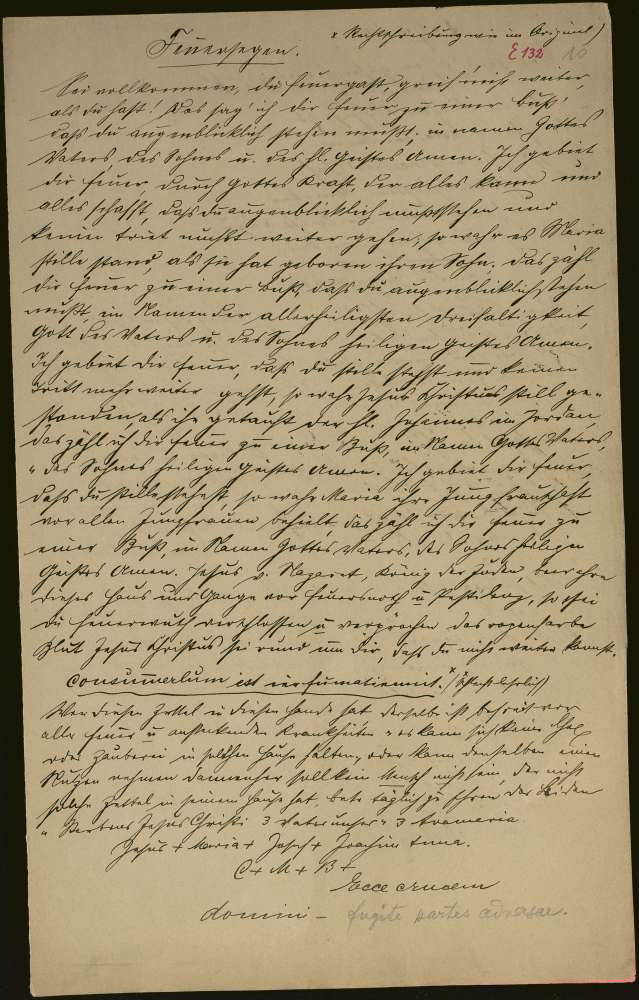 Feuersegen.
× Rechtschreibung wie im Original)
E 132 10
Sei vollkommen, du Feuergast, greif nicht weiter,
als du hast! Das sag' ich dir Feuer zu einer Buß,
dass du augenblicklich stehen mußt, in namen Gottes
Vaters des Sohnes u. des hl. Geistes Amen. Ich gebiet
dir Feuer, durch Gottes Kraft, der alles kann und
alles schafft, dass du augenblicklich mußt stehen und
keinen triet nicht weiter gehen, so wahr es Maria
stille stand, als sie hat geboren ihren Sohn. Das zähl
dir Feuer zu einer Buß, daß du augenblicklich stehen
mußt, im Namen der allerheiligsten Dreifaltigkeit,
Gott des Vaters u. des Sohnes heiligen Geistes Amen.
Ich gebiet dir Feuer, dass du stille stehst und keinen
Tritt mehr weiter gehst, so wahr Jesus Christus still ge=
standen, als ihn getauft der hl. Johannes im Jordan,
das zähl ich dir Feuer zu einer Buß, im Namen Gottes Vaters,
" des Sohnes heiligen Geistes Amen. Ich gebiet dir Feuer,
dass du stille stehst, so wahr Maria ihre Jungfrauschaft
vor allen Jungfrauen behielt, das zähl ich dir Feuer zu
einer Buß, im Namen Gottes, Vaters, des Sohnes heiligen
Geistes Amen. Jesus v. Nazaret, König der Juden, bewahre
dieses Haus und Gänge vor Feuersnoth u Pestilenz, so sei
du Feuerwuth verschlossen u versprochen das rosenfarbe
Blut Jesus Christus sei rund um dir, daß du nicht weiter kannst.
Consumerlum est
Wer diesen Zettel in diesem Hause hat derselbe ist befreit vor
alle Feuer u ansteckenden Krankheiten " es kann sich keine
oder Zauberei in solchen Hause halten, oder kann denselben einen
Nutzen nehmen dannenher soll kein Mensch nicht sein, der nicht
solche Zettel in seinem Hause hat, bete täglich zu Ehren des Leiden
" Sterbens Jesus Christi 3 Vater unser " 3 Avemaria.
Jesus + Maria + Josef + Joachim Anna.
C + M + B +
Ecce crucem
domini – fugite partes adversae.